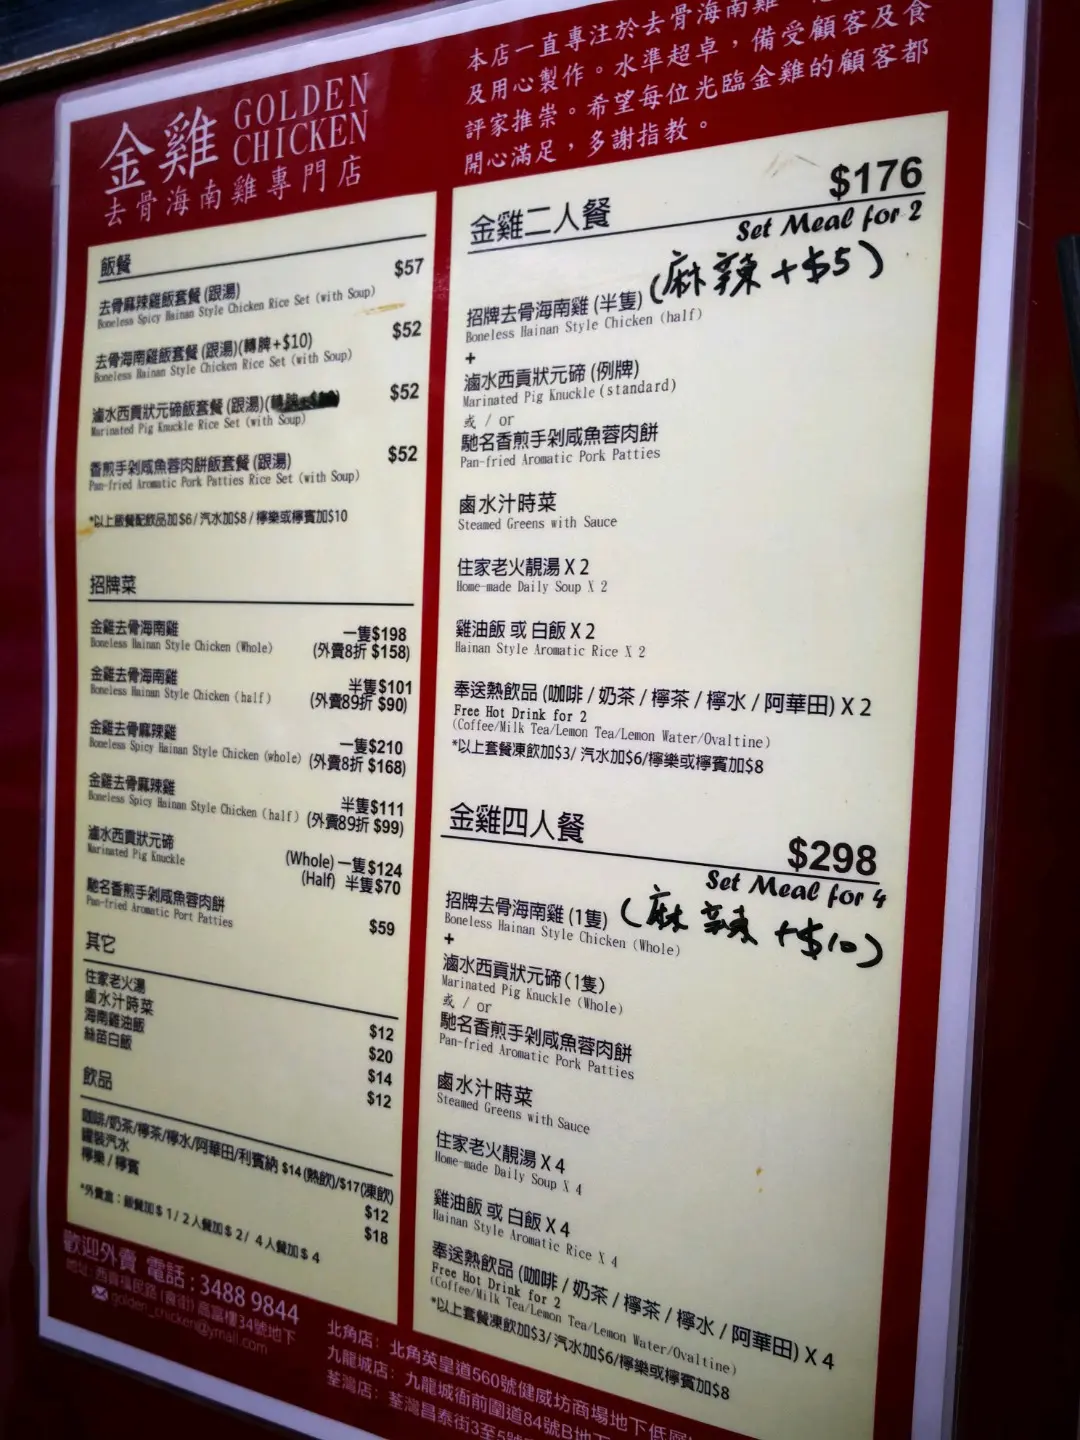 金雞
GOLDEN
CHICKEN
去骨海南雞專門店
本店一直專注於去骨海南雞
及用心製作。水準超卓，備受顧客及食
評家推崇。希望每位光臨金雞的顧客都
開心滿足，多謝指教。
飯餐
去骨麻辣雞飯套餐(跟湯) $57
Boneless Spicy Hainan Style Chicken Rice Set (with Soup)
去骨海南雞飯套餐(跟湯)(轉髀+$10) $52
Boneless Hainan Style Chicken Rice Set (with Soup)
滷水西貢狀元蹄飯套餐(跟湯) $52
Marinated Pig Knuckle Rice Set (with Soup)
香煎手剁咸魚蓉肉餅飯套餐(跟湯) $52
Pan-fried Aromatic Pork Patties Rice Set (with Soup)
*以上飯餐配飲品加$6/汽水加$8/檸樂或檸賓加$10
招牌菜
金雞去骨海南雞 一隻$198
Boneless Hainan Style Chicken (Whole) (外賣8折 $158)
金雞去骨海南雞 半隻$101
Boneless Hainan Style Chicken (half) (外賣89折 $90)
金雞去骨麻辣雞 一隻$210
Boneless Spicy Hainan Style Chicken (whole) (外賣8折 $168)
金雞去骨麻辣雞 半隻$111
Boneless Spicy Hainan Style Chicken (half) (外賣89折 $99)
滷水西貢狀元蹄 (Whole) 一隻$124
Marinated Pig Knuckle (Half) 半隻$70
馳名香煎手剁咸魚蓉肉餅 $59
Pan-fried Aromatic Port Patties
其它
住家老火湯 $12
鹵水汁時菜 $20
海南雞油飯 $14
絲苗白飯 $12
飲品
咖啡/奶茶/檸茶/檸水/阿華田/利賓納 $14(熱飲)/$17(凍飲)
罐裝汽水 $12
檸樂/檸賓 $18
*外賣盒：飯餐加$1/2人餐加$2/4人餐加$4
金雞二人餐 $176
Set Meal for 2
(麻辣+$5)
招牌去骨海南雞(半隻)
Boneless Hainan Style Chicken (half)
+
滷水西貢狀元蹄(例牌)
Marinated Pig Knuckle (standard)
或 / or
馳名香煎手剁咸魚蓉肉餅
Pan-fried Aromatic Pork Patties
鹵水汁時菜
Steamed Greens with Sauce
住家老火靚湯 X 2
Home-made Daily Soup X 2
雞油飯 或 白飯 X 2
Hainan Style Aromatic Rice X 2
奉送熱飲品(咖啡/奶茶/檸茶/檸水/阿華田) X 2
Free Hot Drink for 2
(Coffee/Milk Tea/Lemon Tea/Lemon Water/Ovaltine)
*以上套餐凍飲加$3/ 汽水加$6/檸樂或檸賓加$8
金雞四人餐 $298
Set Meal for 4
招牌去骨海南雞(1隻) (麻辣+$10)
Boneless Hainan Style Chicken (Whole)
+
滷水西貢狀元蹄(1隻)
Marinated Pig Knuckle (Whole)
或 / or
馳名香煎手剁咸魚蓉肉餅
Pan-fried Aromatic Pork Patties
鹵水汁時菜
Steamed Greens with Sauce
住家老火靚湯 X 4
Home-made Daily Soup X 4
雞油飯 或 白飯 X 4
Hainan Style Aromatic Rice X 4
奉送熱飲品(咖啡/奶茶/檸茶/檸水/阿華田) X 4
Free Hot Drink for 2
(Coffee/Milk Tea/Lemon Tea/Lemon Water/Ovaltine)
*以上套餐凍飲加$3/ 汽水加$6/檸樂或檸賓加$8
歡迎外賣 電話：3488 9844
地址：西貢福民路(食街)高富樓34號地下
golden_chicken@ymail.com
北角店：北角英皇道560號健威坊商場地下低層
九龍城店：九龍城衙前圍道84號B地下
荃灣店：荃灣昌泰街3至5號